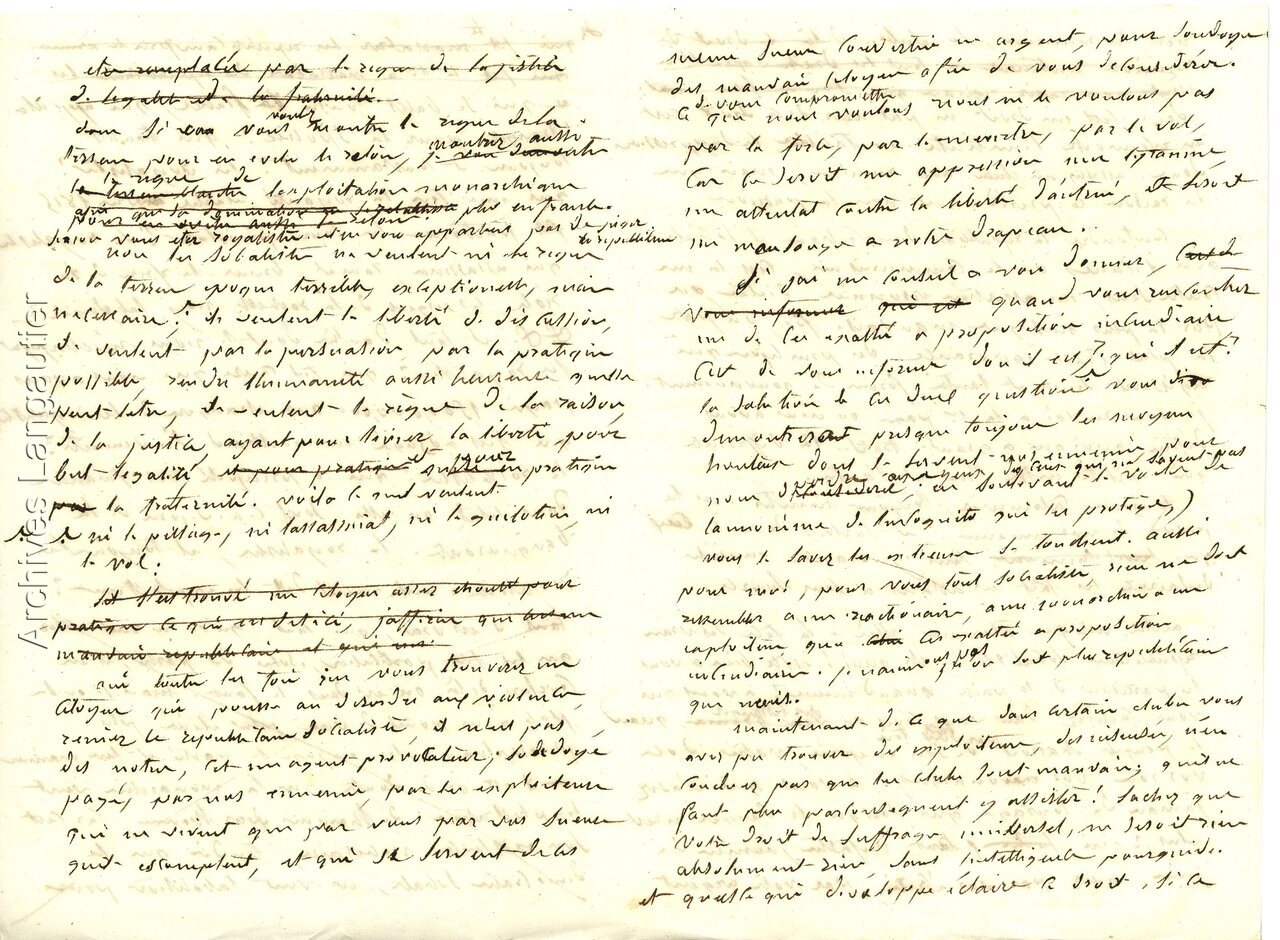 etre remplacée par le regne de la justice
de legalité et de la fraternité.
donc si vous voulez montre le regne de la
terreur pour en evite le retour, montrez aussi
le regne de lexploitation monarchique
plus en france.
sinon vous etes royaliste et ne vous appartien pas de juger
les republicains
non les socialiste ne veulent ni le regne
de la terreur epoque terrible, exceptionelle, mais
necessaire! ils veulent la liberté de discussion,
ils veulent par la persuation, par la pratique
possible, rendre lhumanité aussi heureuse quelle
peut letre, ils veulent le règne de la raison,
de la justice, ayant pour levier la liberté, pour
but legalité et pour pratique
la fraternité. voila ce quil veulent
ni le pillage, ni lassassinat, ni la guilotine, ni
le vol.
Sil s'est trouvé un citoyen assez ehonté pour
pratique ce qui en delicé, jaffirme que
mauvais republicain et que
citoyen qui pousse au desordre aux violences
reniez le republicain socialiste, il n'est pas
des notres, cet un agent provocateur; soudoyé
payé, par nos ennemis, par les exploiteurs
qui ne vivent que par vous par vos sueurs
quils escomptent, et qui se servent de ces
meme sueurs convertie en argent, pour soudoyer
des mauvais citoyens afin de vous deconsidérer.
de vous compromettre
ce que nous voulons nous ne le voulons pas
par la force, par le meurtre, par le vol,
car ce seroit une oppression une tyrannie,
un attentat contre la liberté dautrui, et seroit
un mensonge a notre drapeau.
Si jai un conseil a vous donner,
vous informer qui est quand vous rencontrez
un de ces exalté a proposition incendiaire
cet de vous informe dou il est? qui il est?
la solution de ces deux questions vous
demontreront presque toujour les moyens
honteux dont se servent nos ennemis pour
nous perdre aux yeux de ceux qui ne savent pas
en soulevant le voile de
lanonime de lincognito qui les protege,
vous le savez les extremes se touchent. aussi
pour moi, pour vous tout socialiste, rien ne doit
ressembler a un reactionaire, a un monarchien a un
exploiteur que ces exalté a proposition
incendiaire. je naime pas quon soit plus republicain
que nous.
maintenant de ce que dans certain clubs vous
avez pu trouver des exploiteurs, des insensés, n'en
concluez pas que les clubs sont mauvais; quil ne
faut pas parconsequent y assister! sachez que
votre droit de suffrage universel, ne seroit rien
absolument rien, sans lintelligence pour guide.
et quelle qui developpe éclaire ce droit, si ce
Archives Langautier